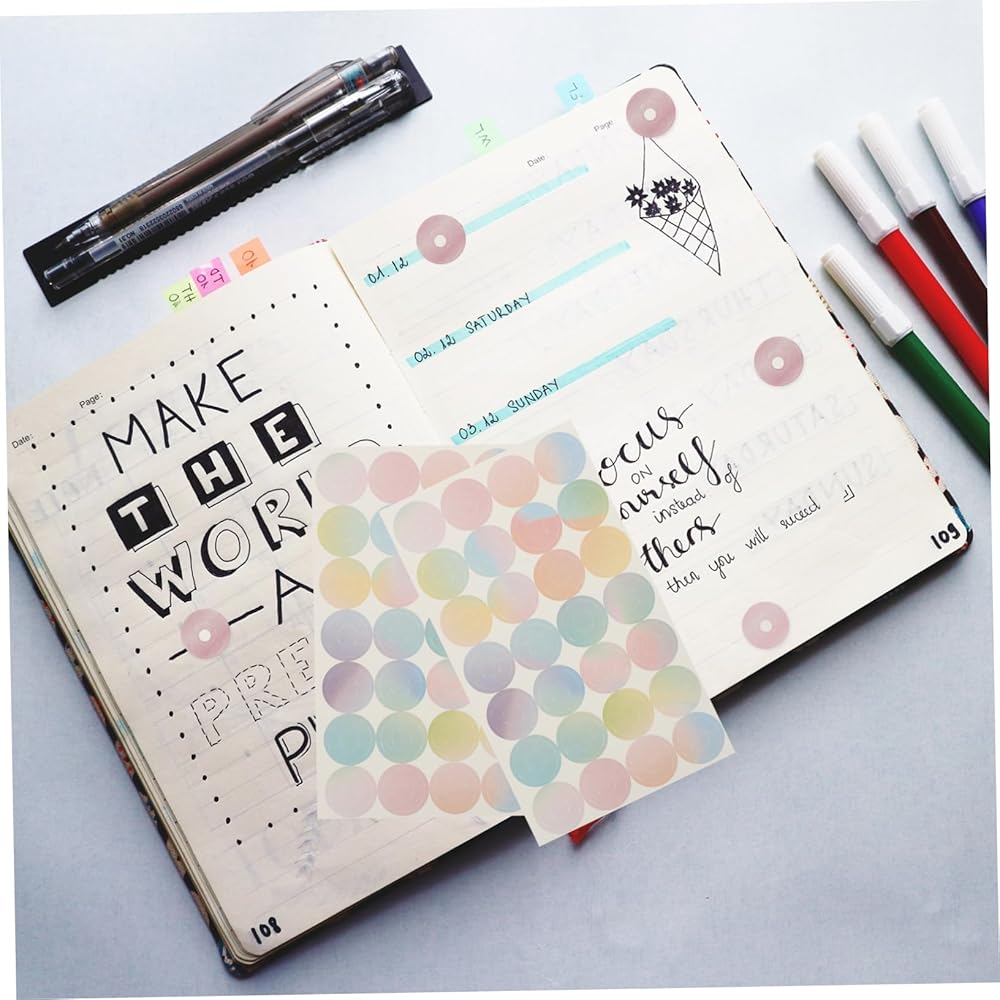 Date:
Page:
MAKE
THE
WOR
A
PRE
108
WL
Date
Page
01.12
02.12 SATURDAY
03.12 SUNDAY
ocus
ON
ourself
instead of
thers
then you will succeed
109